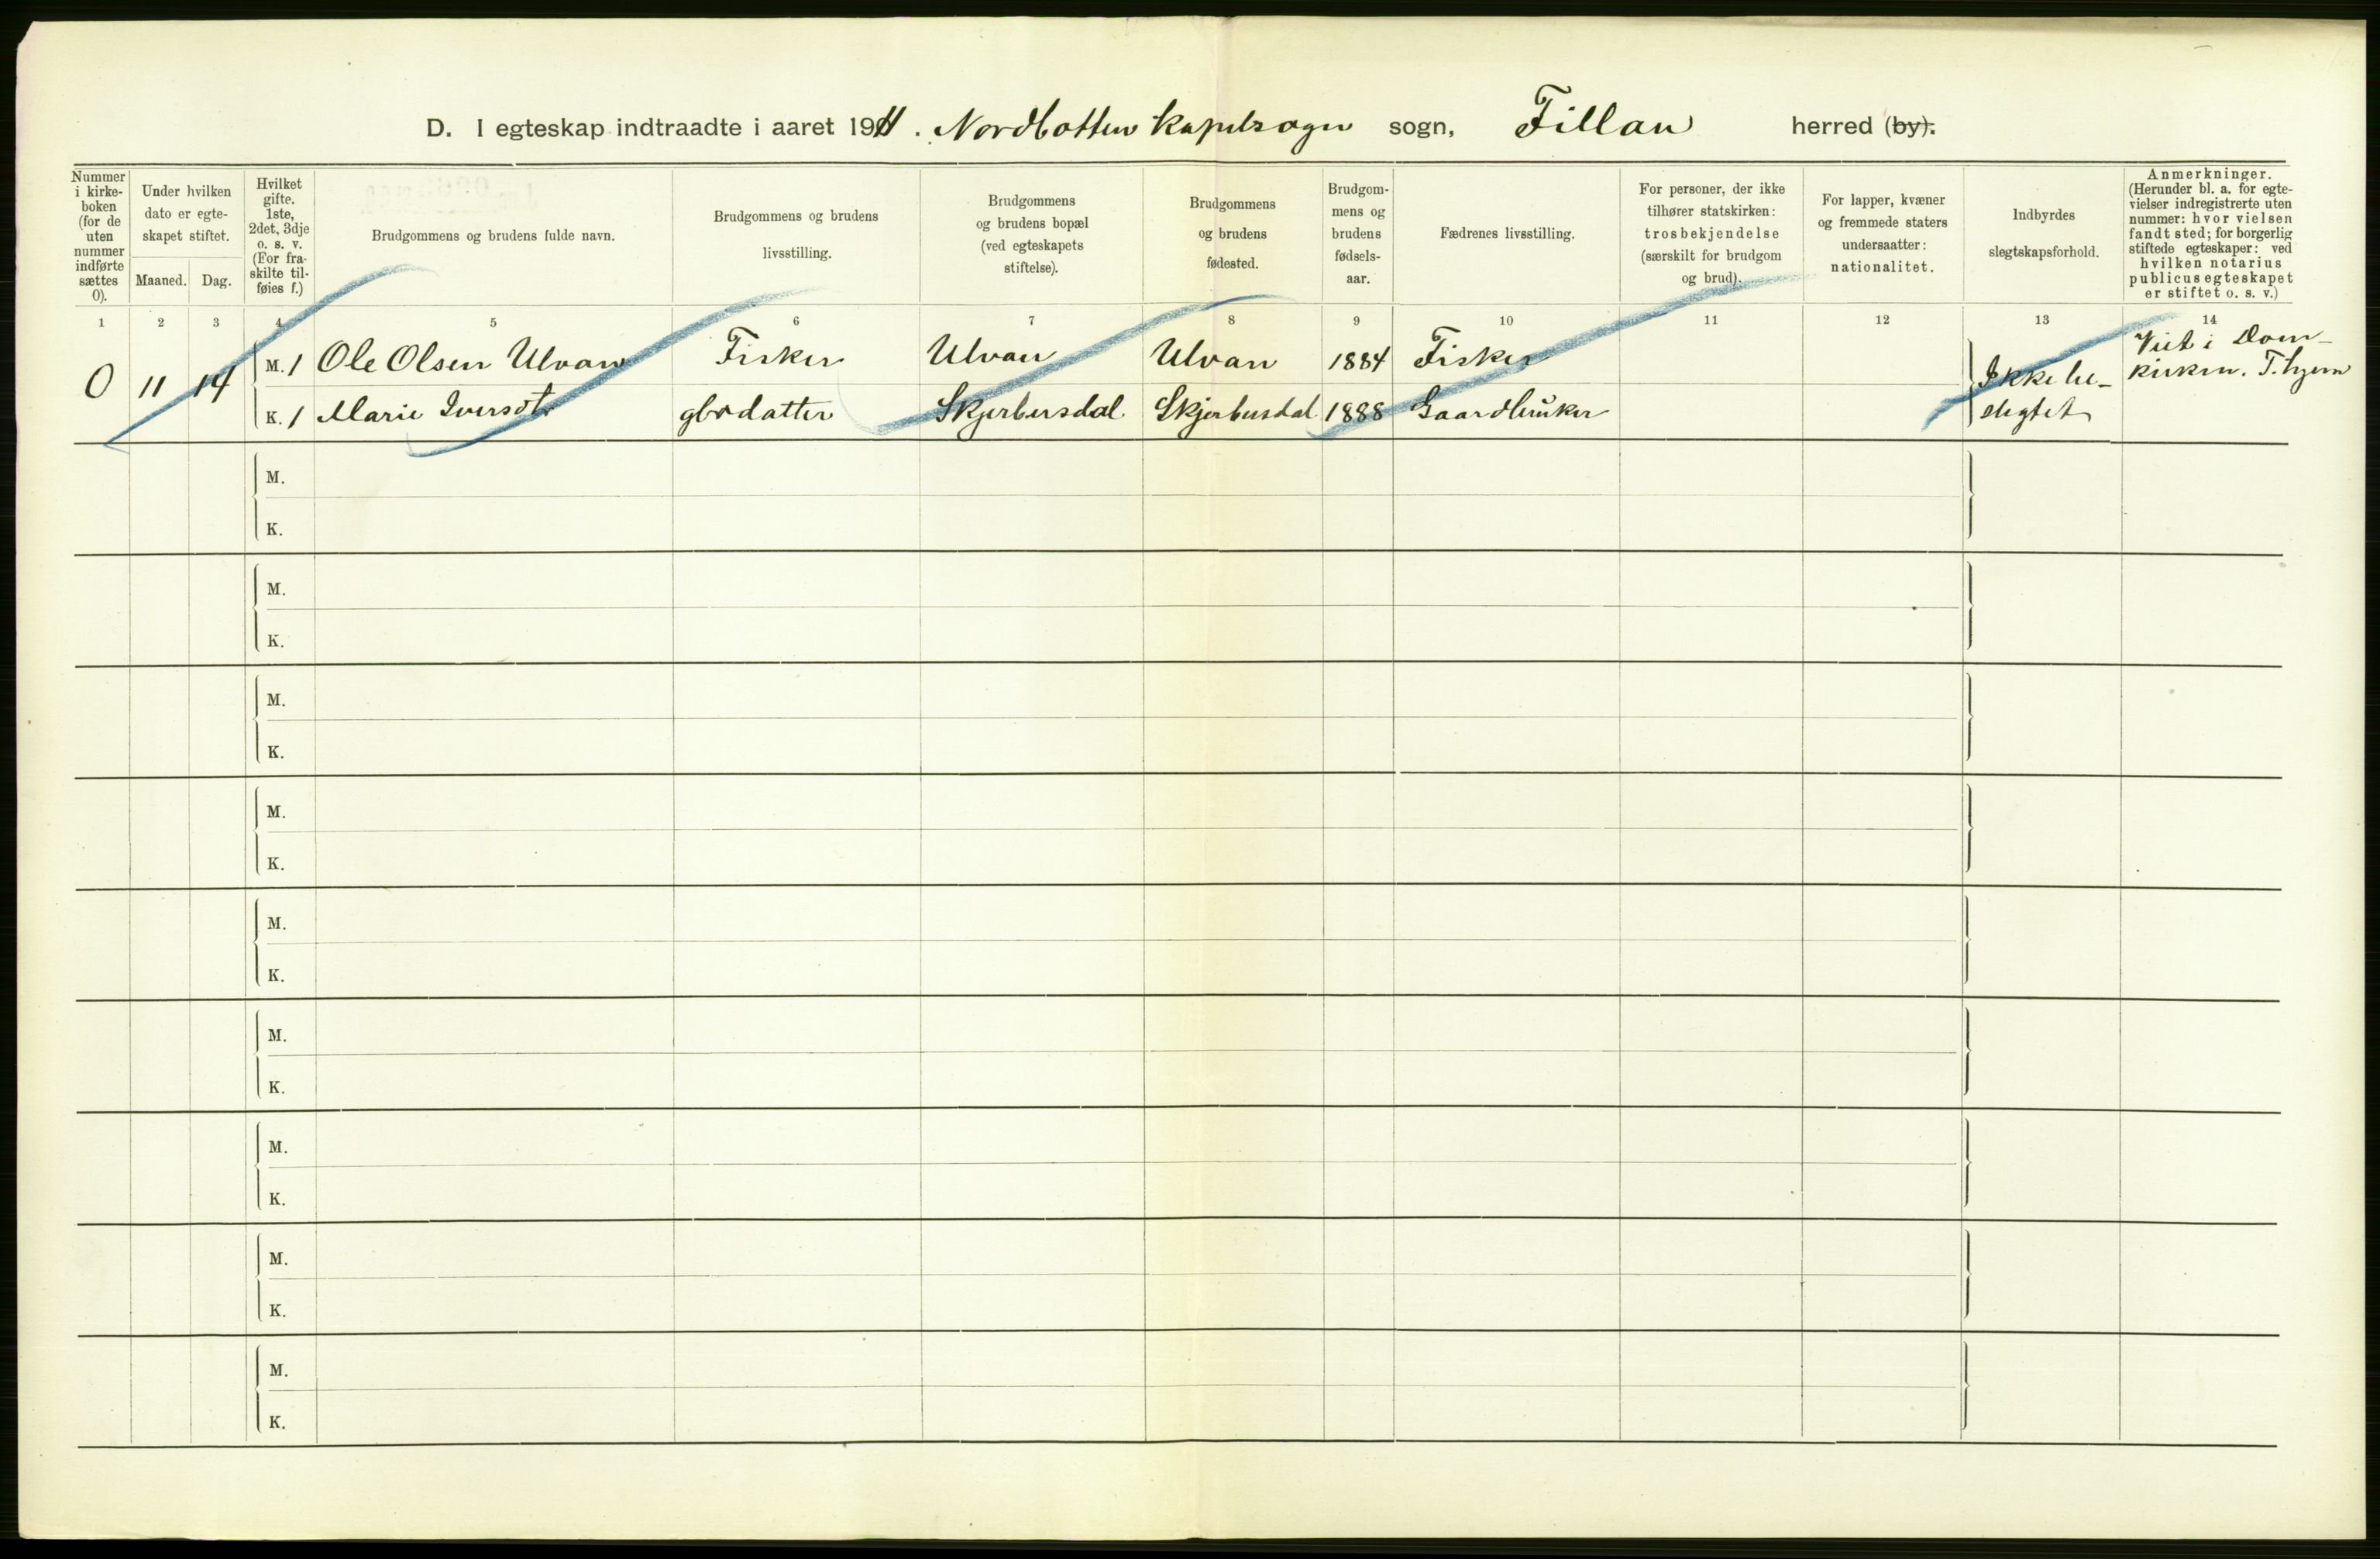 D. I egteskap indtraadte i aaret 1911. Nordbotten kapelsogn sogn, Fillan herred (by).
Nummer i kirke-boken (for de uten nummer indførte sættes 0).
Under hvilken dato er egte-skapet stiftet.
Maaned. Dag.
Hvilket gifte. 1ste, 2det, 3dje o. s. v. (For fra-skilte til-føies f.)
Brudgommens og brudens fulde navn.
Brudgommens og brudens livsstilling.
Brudgommens og brudens bopæl (ved egteskapets stiftelse).
Brudgommens og brudens fødested.
Brudgom-mens og brudens fødsels-aar.
Fædrenes livsstilling.
For personer, der ikke tilhører statskirken: trosbekjendelse (særskilt for brudgom og brud).
For lapper, kvæner og fremmede staters undersaatter: nationalitet.
Indbyrdes slegtskapsforhold.
Anmerkninger. (Herunder bl. a. for egte-vielser indregistrerte uten nummer: hvor vielsen fandt sted; for borgerlig stiftede egteskaper: ved hvilken notarius publicus egteskapet er stiftet o. s. v.)
1 2 3 4 5 6 7 8 9 10 11 12 13 14
0 11 14
M. 1 Ole Olsen Ulvan Fisker Ulvan Ulvan 1884 Fisker
K. 1 Marie Iversdtr gbrdatter Skjerbusdal Skjerbusdal 1888 Gaardbruker
Ikke be-
slegtet
Viet i Dom-
kirken. T.hjem
M.
K.
M.
K.
M.
K.
M.
K.
M.
K.
M.
K.
M.
K.
M.
K.
M.
K.